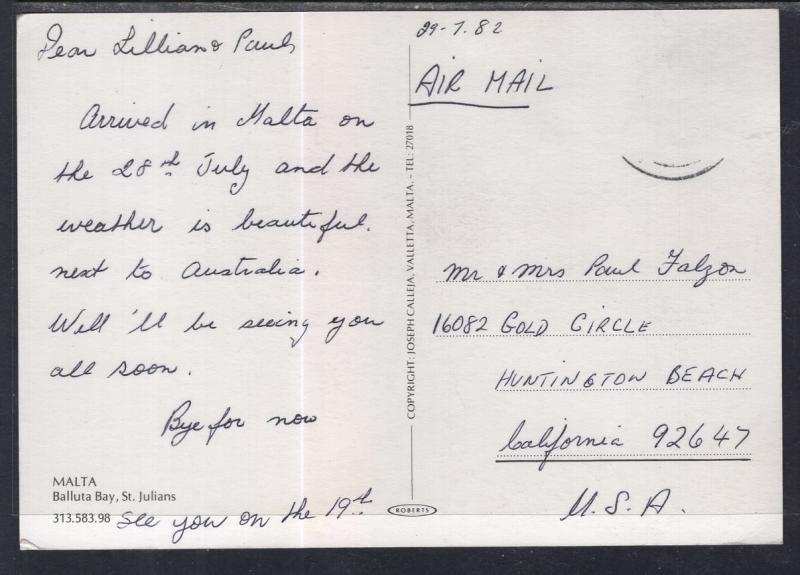 Dear Lillian & Paul,
Arrived in Malta on
the 28th July and the
weather is beautiful.
next to Australia.
Well 'll be seeing you
all soon.
Bye for now
MALTA
Balluta Bay, St. Julians
313.583.98
See you on the 19th
COPYRIGHT: JOSEPH CALLEJA, VALLETTA, MALTA. - TEL: 27018
ROBERTS
29-7.82
AIR MAIL
Mr & Mrs Paul Falzon
16082 GOLD CIRCLE
HUNTINGTON BEACH
California 92647
U.S.A.